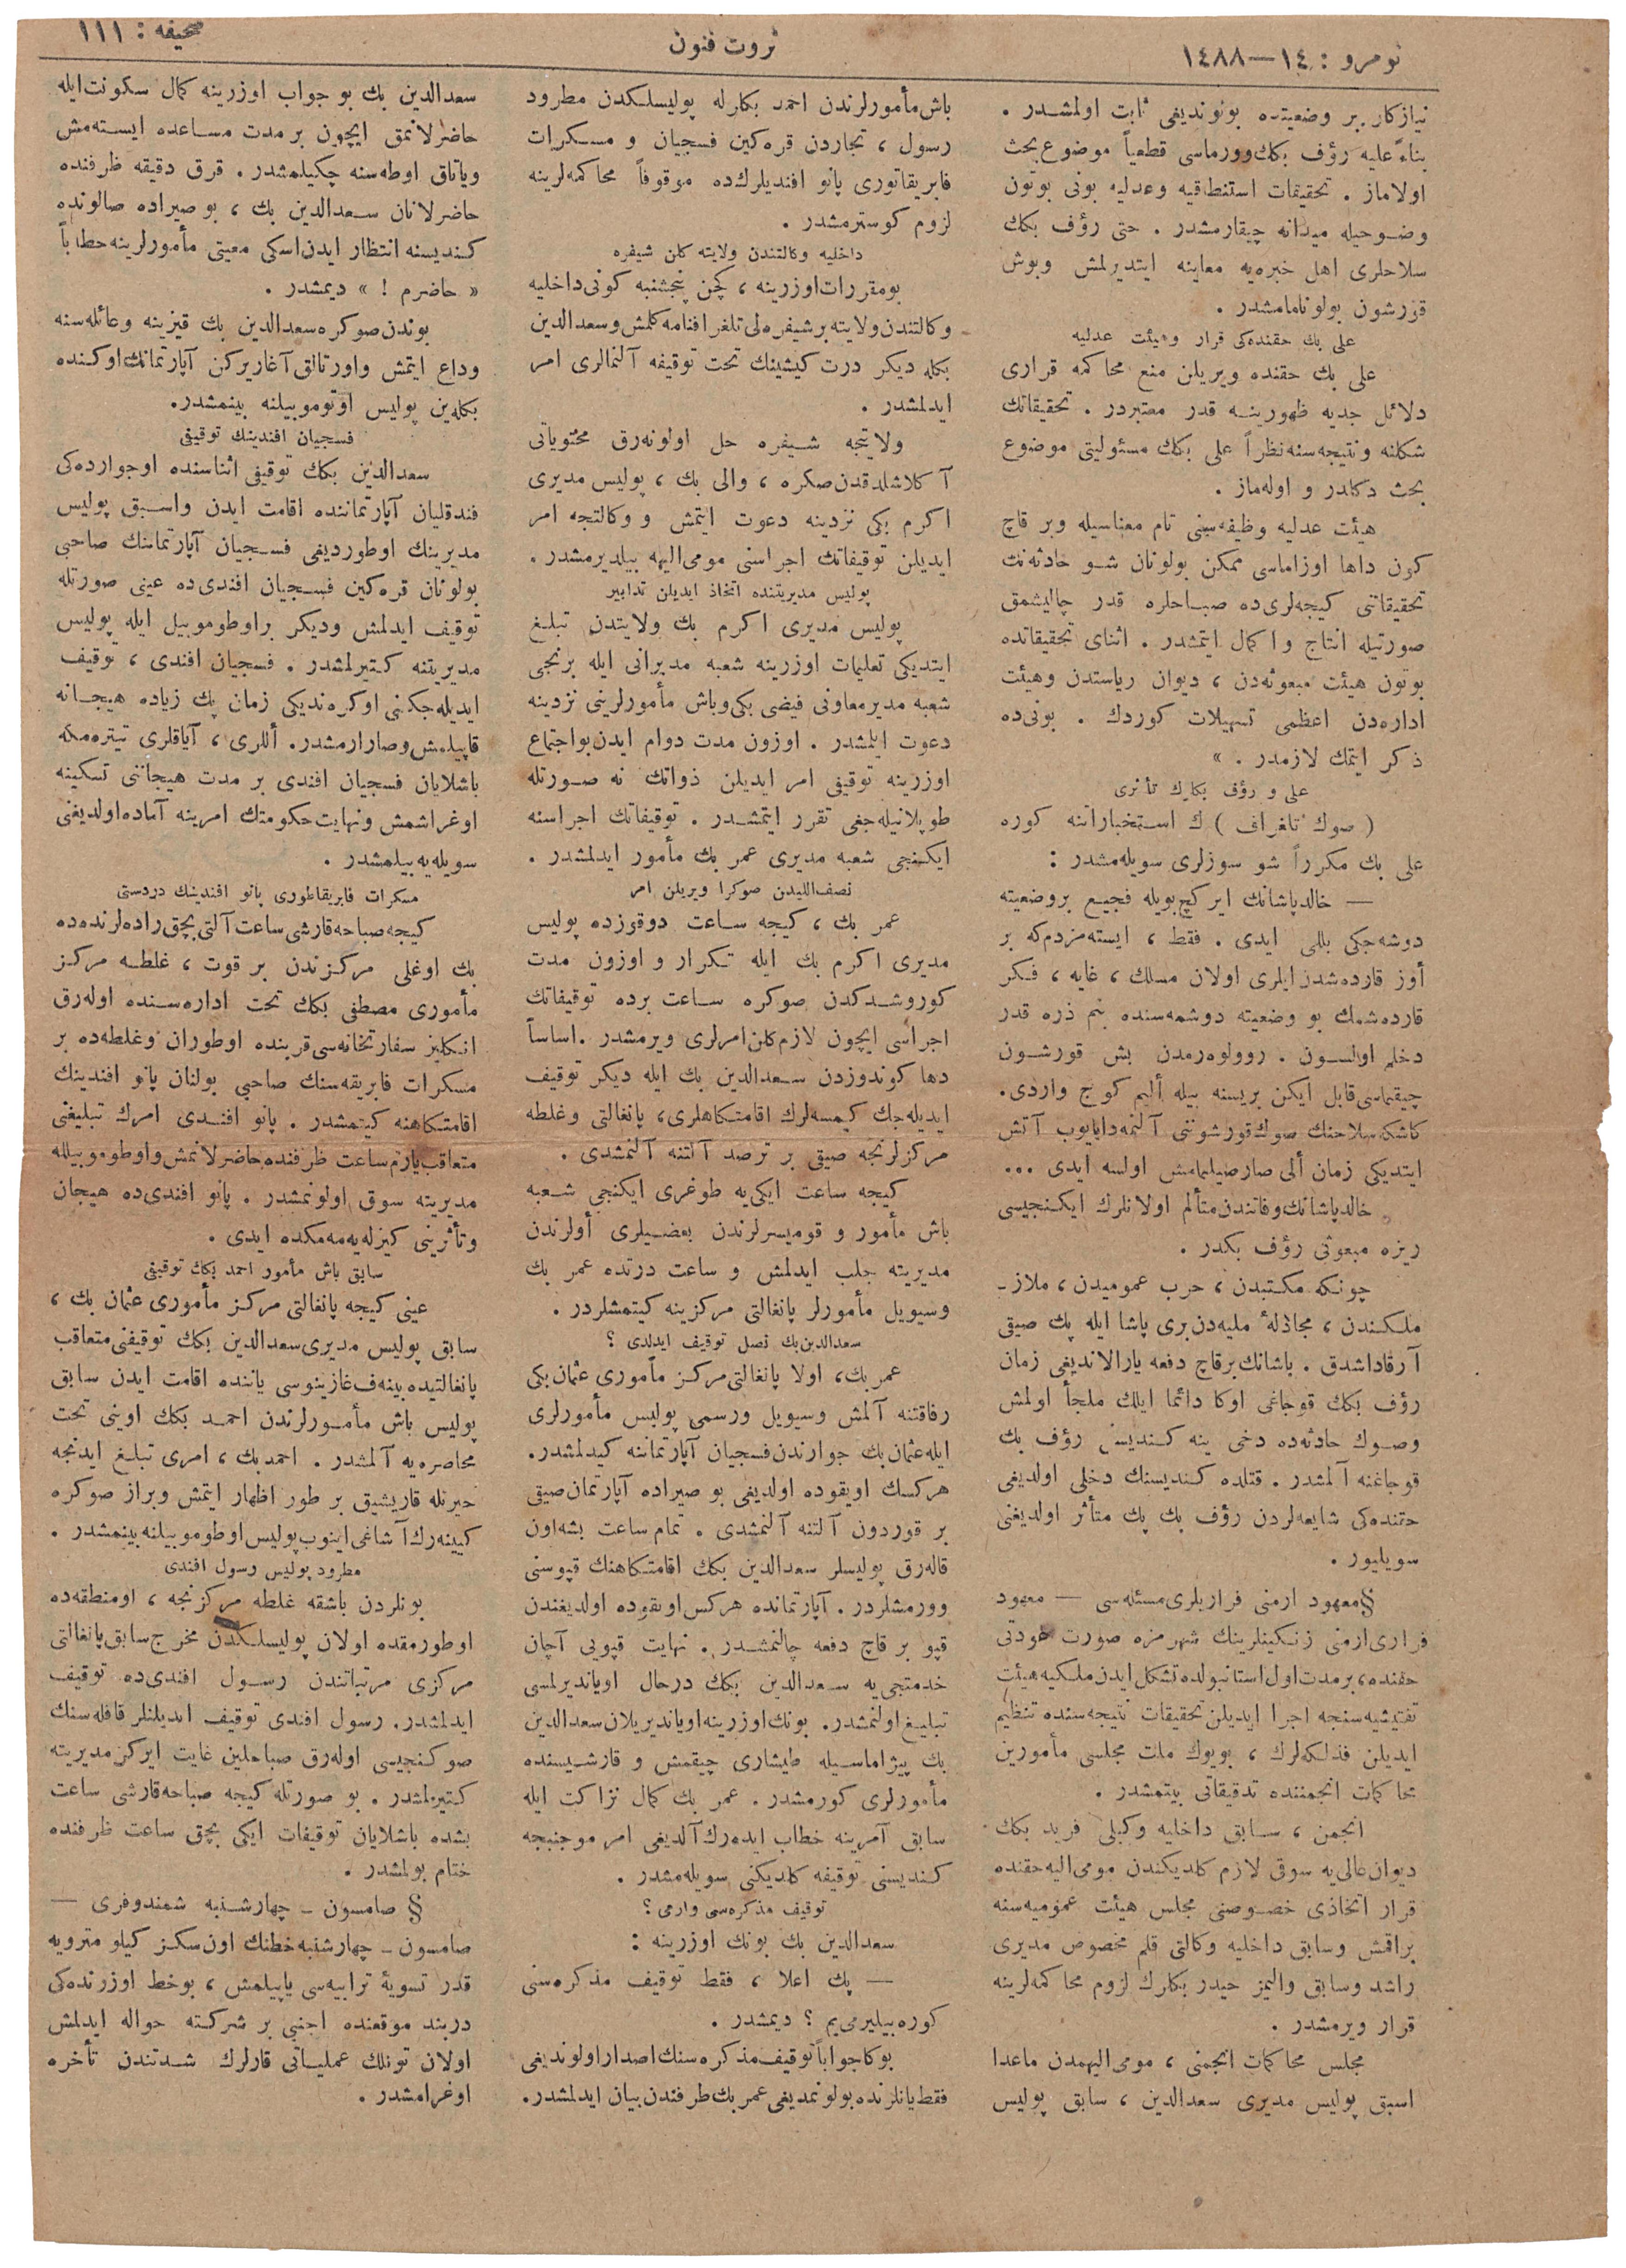 نومرو : ١٤—١٤٨٨
ثروت فنون
صحیفه : ١١١
نیازكار بر وضعیتده بولوندیغی ثابت اولمشدر .
بناءً علیه رؤف بكك وورماسی قطعیاً موضوع بحث
اولاماز . تحقیقات استنطاقیه وعدلیه بونی بوتون
وضوحیله میدانه چیقارمشدر . حتی رؤف بكك
سلاحلری اهل خبره‌یه معاینه ایتدیرلمش وبوش
قورشون بولوناماشدر .
علی بك حقنده‌كی قرار وهیئت عدلیه
علی بك حقنده ویریلن منع محاكمه قراری
دلائل جدیه ظهورینه قدر معتبردر . تحقیقاتك
شكلنه ونتیجه‌سنه نظراً علی بكك مسئولیتی موضوع
بحث دكلدر و اوله‌ماز .
هیئت عدلیه وظیفه‌سنی تام معناسیله وبر قاچ
كون داها اوزاماسی ممكن بولونان شو حادثه‌نك
تحقیقاتنی كیجه‌لری‌ده صباحلره قدر چالیشمق
صورتیله انتاج واكمال ایتمشدر . اثنای تحقیقاتده
بوتون هیئت مبعوثه‌دن ، دیوان ریاستدن وهیئت
اداره‌دن اعظمی تسهیلات كوردك . بونی‌ده
ذكر ایتمك لازمدر . »
علی و رؤف بكلرك تأثری
( صوك تلغراف ) ك استخباراتنه كوره
علی بك مكرراً شو سوزلری سویله‌مشدر :
— خالدپاشانك ایركچ بویله فجیع بروضعیته
دوشه‌جكی بللی ایدی . فقط ، ایسته‌مزدم‌كه بر
أوز قارده‌شدن ایلری اولان مسلك ، غایه ، فكر
قارده‌شمك بو وضعیته دوشمه‌سنده بنم ذره قدر
دخلم اولسون . روولوه‌رمدن بش قورشون
چیقماسی قابل ایكن بریسنه بیله ألیم كوج واردی .
كاشكه سلاحنك صوك قورشوننی آلنمه دایایوب آتش
ایتدیكی زمان ألی صارصیلمامش اولسه ایدی ...
خالدپاشانك وفاتندن متألم اولانلرك ایكنجیسی
ریزه مبعوثی رؤف بكدر .
چونكه مكتبدن ، حرب عمومیدن ، ملاز-
ملكندن ، مجادلهٔ ملیه‌دن بری پاشا ایله پك صیقی
آرقاداشدق . پاشانك برقاچ دفعه یارالاندیغی زمان
رؤف بكك قوجاغی اوكا دائما ایلك ملجأ اولمش
وصوك حادثه‌ده دخی ینه كندیسنی رؤف بك
قوجاغنه آلمشدر . قتلده كندیسنك دخلی اولدیغی
حقنده‌كی شایعه‌لردن رؤف بك پك متأثر اولدیغنی
سویلیور .
§ معهود ارمنی فراریلری مسئله‌سی — معهود
فراری ارمنی زنكینلرینك شهرمزه صورت عودتی
حقنده ، برمدت اول استانبولده تشكل ایدن ملكیه هیئت
تفتیشیه‌سنجه اجرا ایدیلن تحقیقات نتیجه‌سنده تنظیم
ایدیلن فذلكه‌لرك ، بویوك ملت مجلسی مأمورین
محاكمات انجمننده تدقیقاتی بیتمشدر .
انجمن ، سابق داخلیه وكیلی فرید بكك
دیوان عالی‌یه سوقی لازم كلدیكندن مومی‌الیه حقنده
قرار اتخاذی خصوصنی مجلس هیئت عمومیه‌سنه
براقمش وسابق داخلیه وكالتی قلم مخصوص مدیری
راشد وسابق والیمز حیدر بكلرك لزوم محاكمه‌لرینه
قرار ویرمشدر .
مجلس محاكمات انجمنی ، مومی‌الیهمدن ماعدا
اسبق پولیس مدیری سعدالدین ، سابق پولیس
باش‌مأمورلرندن احمد بكلرله پولیسلكدن مطرود
رسول ، تجاردن قره‌كین فسجیان و مسكرات
فابریقاتوری پانو افندیلرك‌ده موقوفاً محاكمه‌لرینه
لزوم كوسترمشدر .
داخلیه وكالتندن ولایته كلن شیفره
بومقررات اوزرینه ، كچن پنجشنبه كونی داخلیه
وكالتندن ولایته برشیفره‌لی تلغرافنامه كلمش وسعدالدین
بكله دیكر درت كیشینك تحت توقیفه آلنمالری امر
ایدلمشدر .
ولایتجه شیفره حل اولونه‌رق محتویاتی
آكلاشلدقدن‌صكره ، والی بك ، پولیس مدیری
اكرم بكی نزدینه دعوت ایتمش و وكالتجه امر
ایدیلن توقیفاتك اجراسنی مومی‌الیهه بیلدیرمشدر .
پولیس مدیریتنده اتخاذ ایدیلن تدابیر
پولیس مدیری اكرم بك ولایتدن تبلیغ
ایتدیكی تعلیمات اوزرینه شعبه مدیرانی ایله برنجی
شعبه مدیرمعاونی فیضی بكی وباش مأمورلرینی نزدینه
دعوت ایلمشدر . اوزون مدت دوام ایدن بواجتماع
اوزرینه توقیفی امر ایدیلن ذواتك نه صورتله
طوپلانیله‌جغی تقرر ایتمشدر . توقیفاتك اجراسنه
ایكنجی شعبه مدیری عمر بك مأمور ایدلمشدر .
نصف‌اللیدن صوكرا ویریلن امر
عمر بك ، كیجه ساعت دوقوزده پولیس
مدیری اكرم بك ایله تكرار و اوزون مدت
كوروشدكدن صوكره ساعت برده توقیفاتك
اجراسی ایچون لازم كلن امرلری ویرمشدر . اساساً
دها كوندوزدن سعدالدین بك ایله دیكر توقیف
ایدیله‌جك كیمسه‌لرك اقامتكاهلری ، پانغالتی وغلطه
مركزلرنجه صیقی بر ترصد آلتنه آلنمشدی .
كیجه ساعت ایكی‌یه طوغری ایكنجی شعبه
باش مأمور و قومیسرلرندن بعضیلری أولرندن
مدیریته جلب ایدلمش و ساعت درتده عمر بك
وسیویل مأمورلر پانغالتی مركزینه كیتمشلردر .
سعدالدین‌بك نصل توقیف ایدلدی ؟
عمر بك ، اولا پانغالتی مركز مأموری عثمان بكی
رفاقتنه آلمش وسیویل ورسمی پولیس مأمورلری
ایله عثمان بك جوارندن فسجیان آپارتماننه كیدلمشدر.
هركسك اویقوده اولدیغی بو صیراده آپارتمان صیقی
بر قوردون آلتنه آلنمشدی . تمام ساعت بشه اون
قاله‌رق پولیسلر سعدالدین بكك اقامتكاهنك قپوسنی
وورمشلردر . آپارتمانده هركس اویقوده اولدیغندن
قپو بر قاچ دفعه چالنمشدر . نهایت قپویی آچان
خدمتجی‌یه سعدالدین بكك درحال اویاندیرلمسی
تبلیغ اولنمشدر . بونك اوزرینه اویاندیریلان سعدالدین
بك پیژاماسیله طیشاری چیقمش و قارشیسنده
مأمورلری كورمشدر . عمر بك كمال نزاكت ایله
سابق آمرینه خطاب ایده‌رك آلدیغی امر موجبنجه
كندیسنی توقیفه كلدیكنی سویله‌مشدر .
توقیف مذكره‌سی وارمی ؟
سعدالدین بك بونك اوزرینه :
— پك اعلا ، فقط توقیف مذكره‌سنی
كوره‌بیلیرمی‌یم ؟ دیمشدر .
بوكا جواباً توقیف مذكره‌سنك اصدار اولوندیغی
فقط یانلرنده بولونمدیغی عمر بك طرفندن بیان ایدلمشدر.
سعدالدین بك بو جواب اوزرینه كمال سكونت ایله
حاضرلانمق ایچون بر مدت مساعده ایسته‌مش
ویاتاق اوطه‌سنه چكیلمشدر . قرق دقیقه ظرفنده
حاضرلانان سعدالدین بك ، بو صیراده صالونده
كندیسنه انتظار ایدن اسكی معیتی مأمورلرینه خطاباً
« حاضرم ! » دیمشدر .
بوندن صوكره سعدالدین بك قیزینه وعائله‌سنه
وداع ایتمش واورتالق آغاریركن آپارتمانك اوكنده
بكله‌ین پولیس اوتوموبیلنه بینمشدر.
فسجیان افندینك توقیفی
سعدالدین بكك توقیفی اثناسنده اوجوارده‌كی
فندقلیان آپارتماننده اقامت ایدن واسبق پولیس
مدیرینك اوطوردیغی فسجیان آپارتماننك صاحبی
بولونان قره‌كین فسجیان افندی‌ده عینی صورتله
توقیف ایدلمش ودیكر براوطوموبیل ایله پولیس
مدیریتنه كتیرلمشدر . فسجیان افندی ، توقیف
ایدیله‌جكنی اوكره‌ندیكی زمان پك زیاده هیجانه
قاپیلمش وصارارمشدر. أللری ، آیاقلری تیتره‌مكه
باشلایان فسجیان افندی بر مدت هیجاننی تسكینه
اوغراشمش ونهایت حكومتك امرینه آماده اولدیغنی
سویله‌یه بیلمشدر .
مسكرات فابریقاطوری پانو افندینك دردستی
كیجه صباحه قارشی ساعت آلتی بچق راده‌لرنده‌ده
بك اوغلی مركزندن بر قوت ، غلطه مركز
مأموری مصطفی بكك تحت اداره‌سنده اوله‌رق
انكلیز سفارتخانه‌سی قربنده اوطوران وغلطه‌ده بر
مسكرات فابریقه‌سنك صاحبی بولنان پانو افندینك
اقامتكاهنه كیتمشدر . پانو افندی امرك تبلیغنی
متعاقب یارم ساعت ظرفنده حاضرلانمش واوطوموبیلله
مدیریته سوق اولونمشدر . پانو افندی‌ده هیجان
وتأثرینی كیزله‌یه‌مه‌مكده ایدی .
سابق باش مأمور احمد بكك توقیفی
عینی كیجه پانغالتی مركز مأموری عثمان بك ،
سابق پولیس مدیری سعدالدین بكك توقیفنی متعاقب
پانغالتیده بینه‌ف غازینوسی یاننده اقامت ایدن سابق
پولیس باش مأمورلرندن احمد بكك اوینی تحت
محاصره‌یه آلمشدر . احمدبك ، امری تبلیغ ایدنجه
حیرتله قاریشیق بر طور اظهار ایتمش وبراز صوكره
كیینه‌رك آشاغی اینوب پولیس اوطوموبیلنه بینمشدر .
مطرود پولیس رسول افندی
بونلردن باشقه غلطه مركزنجه ، اومنطقه‌ده
اوطورمقده اولان پولیسلكدن مخرج سابق پانغالتی
مركزی مرتباتندن رسول افندی‌ده توقیف
ایدلمشدر. رسول افندی توقیف ایدیلنلر قافله‌سنك
صوكنجیسی اوله‌رق صباحلین غایت ایركن مدیریته
كتیرلمشدر . بو صورتله كیجه صباحه قارشی ساعت
بشده باشلایان توقیفات ایكی بچق ساعت ظرفنده
ختام بولمشدر .
§ صامسون ـ چهارشنبه شمندوفری —
صامسون ـ چهارشنبه خطنك اون سكز كیلو مترویه
قدر تسویهٔ ترابیه‌سی یاپیلمش ، بوخط اوزرنده‌كی
دربند موقعنده اجنبی بر شركته حواله ایدلمش
اولان تونلك عملیاتی قارلرك شدتندن تأخره
اوغرامشدر .